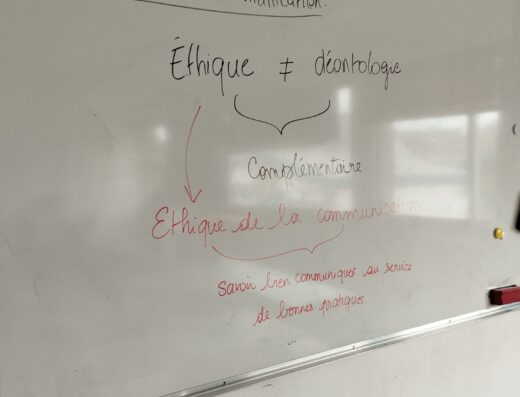 Éthique ≠ déontologie
Complémentaire.
Ethique de la communication
Savoir bien communiquer au service
de bonnes pratiques
...